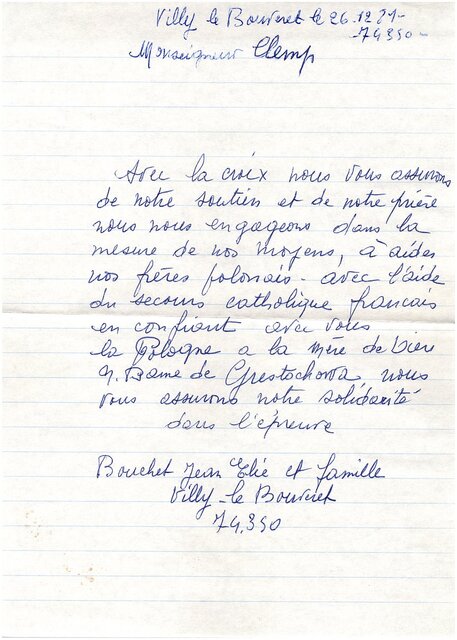 Villy le Bouveret le 26.12.81-
-74350-
Monseigneur Clemp
Avec la croix nous vous assurons
de notre soutien et de notre prière
nous nous engageons dans la
mesure de nos moyens, à aider
nos frères polonais - avec l'aide
du secours catholique francais
en confiant avec vous
la Pologne a la mère de Dieu
N. Dame de Grestochowa nous
vous assurons notre solidarité
dans l'épreuve
Bouchet Jean Elie et famille
Villy-le Bouveret
74.350